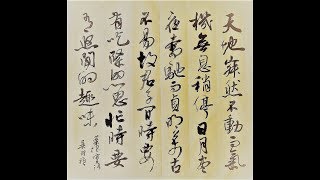 天地寂然不動而氣
機無息稍停日月晝
夜奔馳而貞明萬古
不易故君子閒時要
有吃緊的心思忙時要
有悠閒的趣味